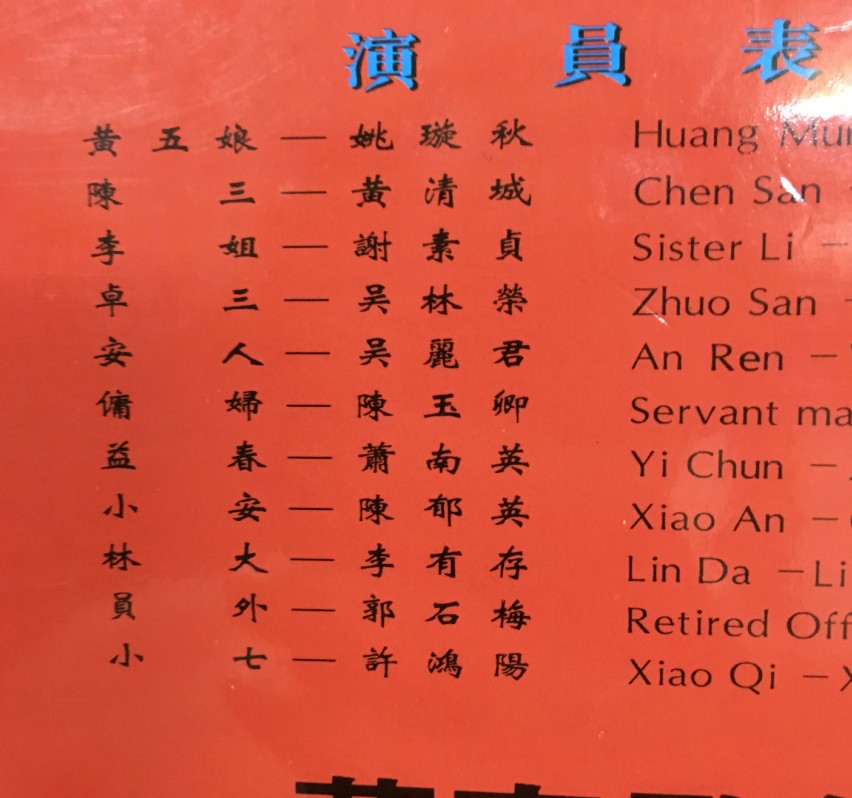 演員表
黃五娘—姚璇秋 Huang
陳三—黃清城 Chen San
李姐—謝素貞 Sister Li —
卓三—吴林榮 Zhuo San
安人—吴麗君 An Ren —
傭婦—陳玉卿 Servant ma
益春—蕭南英 Yi Chun —
小安—陳郁英 Xiao An —
林大—李有存 Lin Da —Li
員外—郭石梅 Retired Off
小七—許鴻陽 Xiao Qi —X